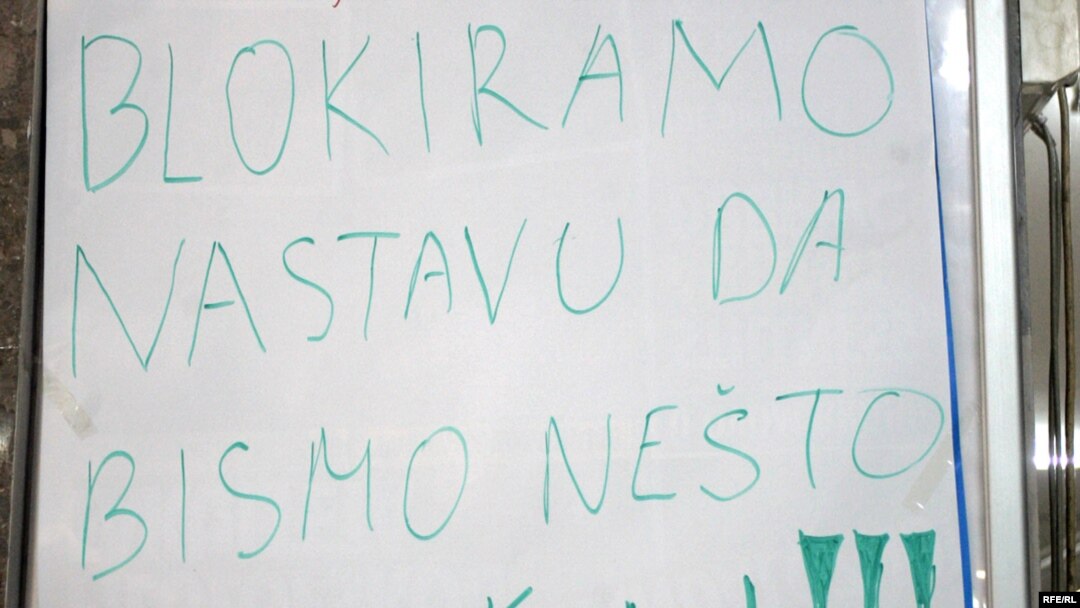 BLOKIRAMO
NASTAVU DA
BISMO NEŠTO
!!!
RFE/RL